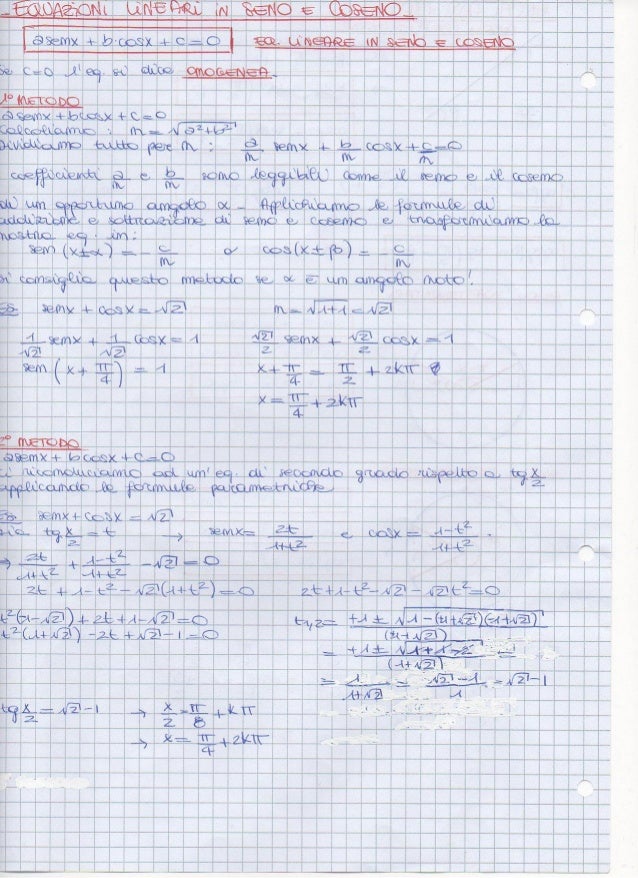 EQUAZIONI LINEARI IN SENO E COSENO
a senx + b·cosx + c = 0    EQ. LINEARE IN SENO E COSENO
se c=0 l'eq. si dice OMOGENEA.
1° METODO
a senx + b cosx + c = 0
calcoliamo : m = √(a²+b²)
dividiamo tutto per m : a/m senx + b/m cosx + c/m = 0
coefficienti a/m e b/m sono leggibili come il seno e il coseno
di un opportuno angolo α - Applichiamo le formule di
addizione e sottrazione di seno e coseno e trasformiamo la
nostra eq. in:
sen (x±α) = - c/m   o   cos(x±β) = - c/m
si consiglia questo metodo se α è un angolo noto!
Es senx + cosx = √2    m = √(1+1) = √2
1/√2 senx + 1/√2 cosx = 1    √2/2 senx + √2/2 cosx = 1
sen (x + π/4) = 1    x + π/4 = π/2 + 2kπ
x = π/4 + 2kπ
2° METODO
a senx + b cosx + c = 0
ci riconduciamo ad un'eq. di secondo grado rispetto a tg x/2
applicando le formule parametriche
Es senx + cosx = √2
sia tg x/2 = t → senx = 2t/(1+t²) e cosx = (1-t²)/(1+t²) .
→ 2t/(1+t²) + (1-t²)/(1+t²) - √2 = 0
2t + 1-t² - √2(1+t²) = 0    2t+1-t²-√2-√2t² = 0
t²(-1-√2) + 2t + 1-√2 = 0    t₁,₂ = (+1 ± √(1-(1+√2)(-1+√2)))/(1+√2)
t²(1+√2) - 2t + √2 - 1 = 0
= (+1 ± √(1+1-2))/(1+√2) =
= 1/(1+√2) = (√2-1)/1 = √2-1
tg x/2 = √2-1 → x/2 = π/8 + kπ
→ x = π/4 + 2kπ